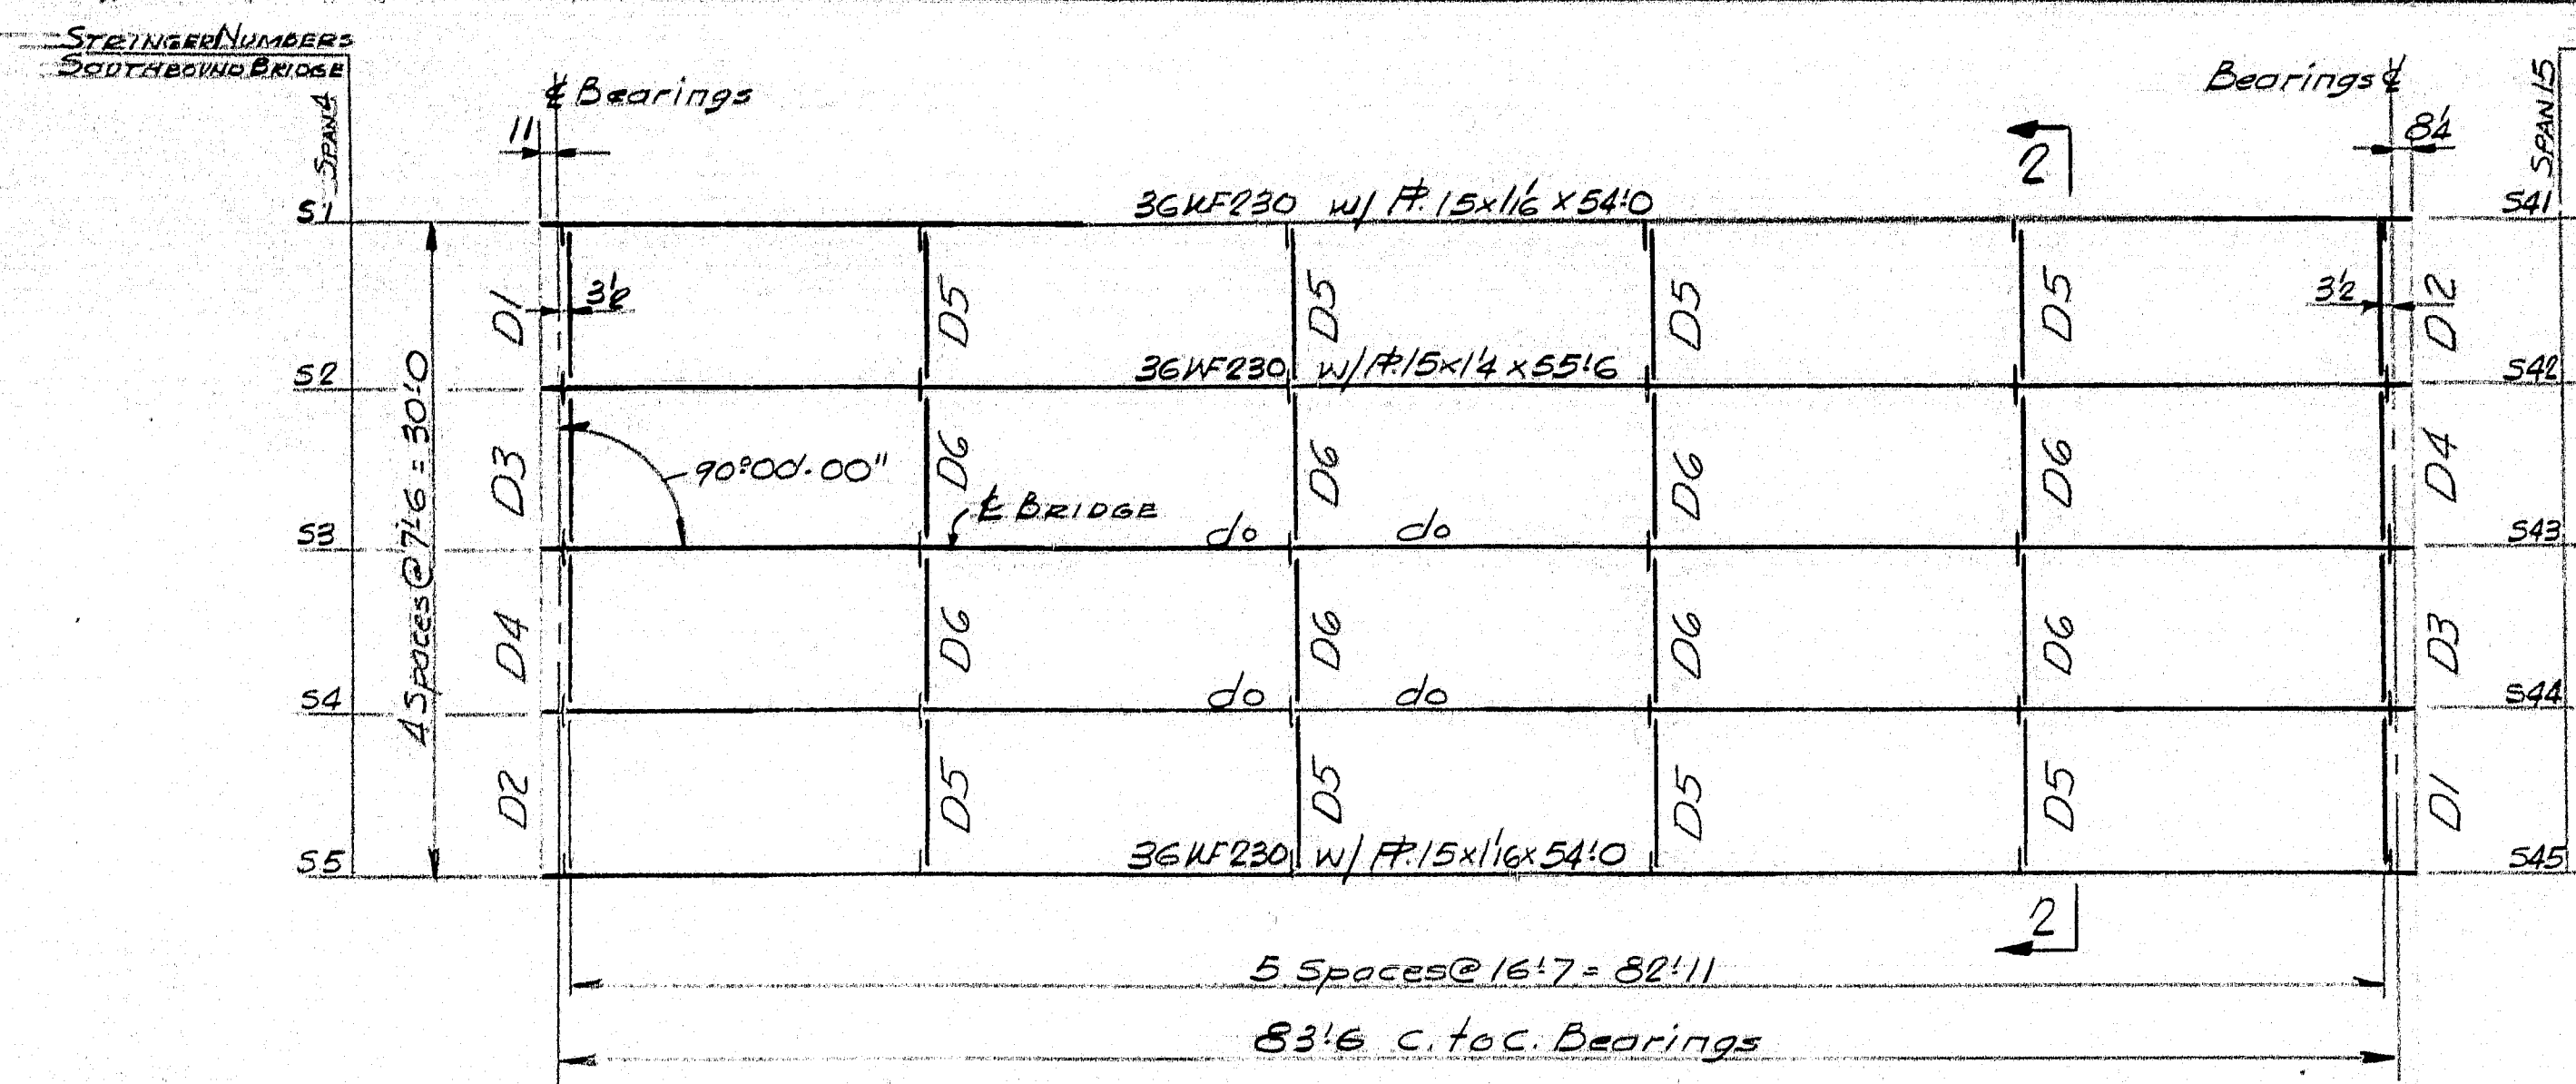 STRINGER NUMBERS
SOUTHBOUND BRIDGE
SPAN 4
SPAN 15
℄ Bearings
Bearings ℄
11
8¼
2
S1
36WF230 w/ PL. 15x1 1/16 x 54'-0
S41
D1
3½
D5
D5
D5
D5
3½
D2
S2
36WF230 w/ PL. 15x1¼ x 55'-6
S42
4 Spaces @ 7'-6 = 30'-0
D3
90°00'-00"
D6
D6
D6
D6
D4
℄ BRIDGE
S3
do do
S43
D4
D6
D6
D6
D6
D3
S4
do do
S44
D2
D5
D5
D5
D5
D1
S5
36WF230 w/ PL. 15x1 1/16 x 54'-0
S45
2
5 Spaces @ 16'-7 = 82'-11
83'-6 c. to c. Bearings